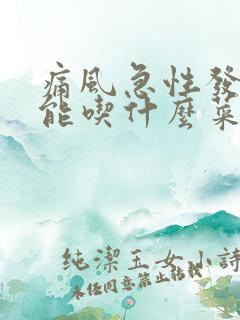 痛風急性發
能喫什麼菜
純潔玉女小詩
未任同意禁止轉載